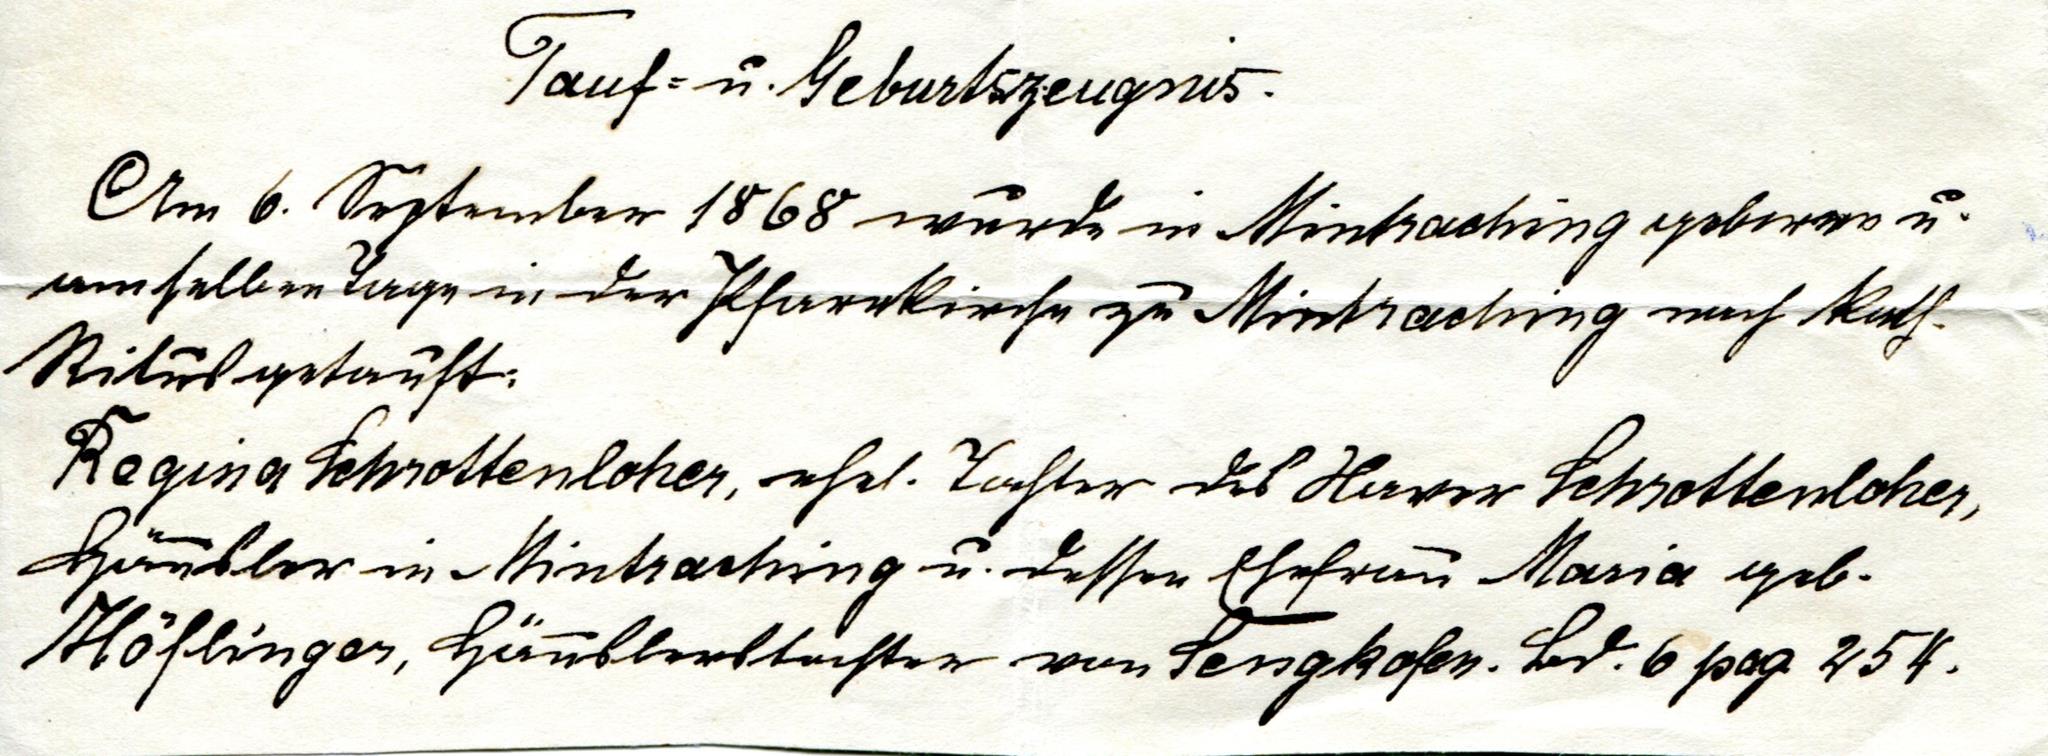 Tauf- u. Geburtszeugnis.
Am 6. September 1868 wurde in Mintraching geboren u.
am selben Tage in der Pfarrkirche zu Mintraching nach kath.
Ritus getauft:
Regina Schrottenloher, ehel. Tochter des Xaver Schrottenloher,
Häusler in Mintraching u. dessen Ehefrau Maria geb.
Höflinger, Häuslerstochter von Sengkofen. Bd. 6 pag 254.